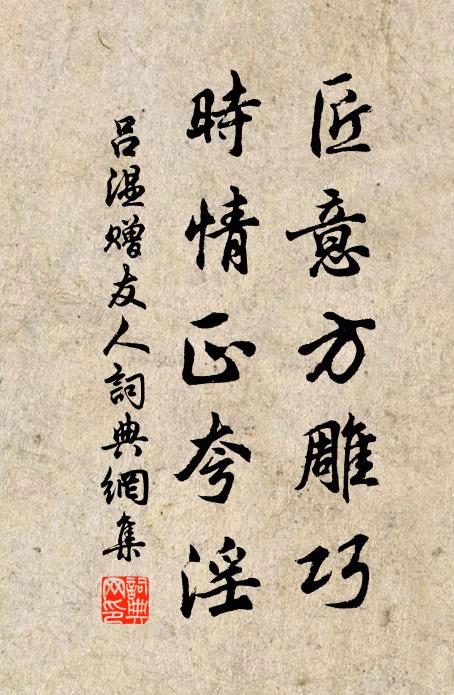 匠意方雕巧
時情正夸淫
呂温贈友人詞典網集
詞典网印